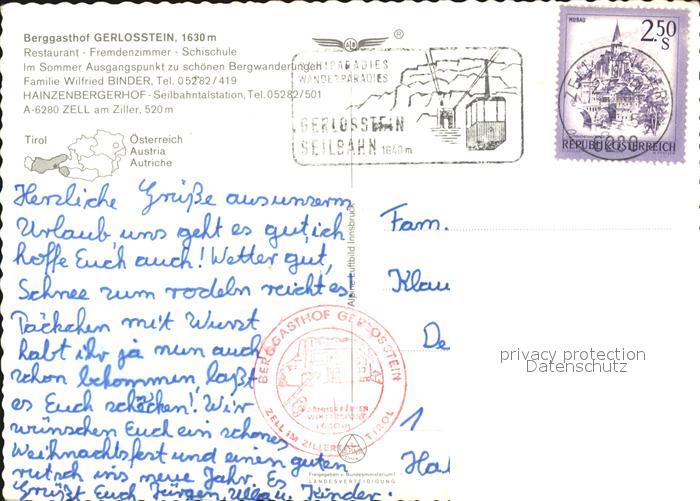 Berggasthof GERLOSSTEIN, 1630 m
Restaurant - Fremdenzimmer - Schischule
Im Sommer Ausgangspunkt zu schönen Bergwanderungen
Familie Wilfried BINDER, Tel. 05282/419
HAINZENBERGERHOF - Seilbahntalstation, Tel. 05282/501
A-6280 ZELL am Ziller, 520 m
Tirol
Österreich
Austria
Autriche
SCHIPARADIES
WANDERPARADIES
GERLOSSTEIN
SEILBAHN 1640m
MURAU
2.50 S
6280
REPUBLIK ÖSTERREICH
Herzliche Grüße aus unserm
Urlaub uns geht es gut, ich
hoffe Euch auch! Wetter gut,
Schnee zum rodeln reicht es!
Päckchen mit Wurst
habt ihr ja nun auch
schon bekommen, laßt
es Euch schmecken! Wir
wünschen Euch ein schönes
Weihnachtsfest und einen guten
rutsch ins neue Jahr. Es
Grüßt Euch Jürgen, Ulla u. Kinder.
Alpine Luftbild Innsbruck
BERGGASTHOF GERLOSSTEIN
1630m
ZELL IM ZILLERTAL TIROL
Freigegeben v. Bundesministerium f.
LANDESVERTEIDIGUNG
Fam.
Klau
De
1
Hal
privacy protection
Datenschutz